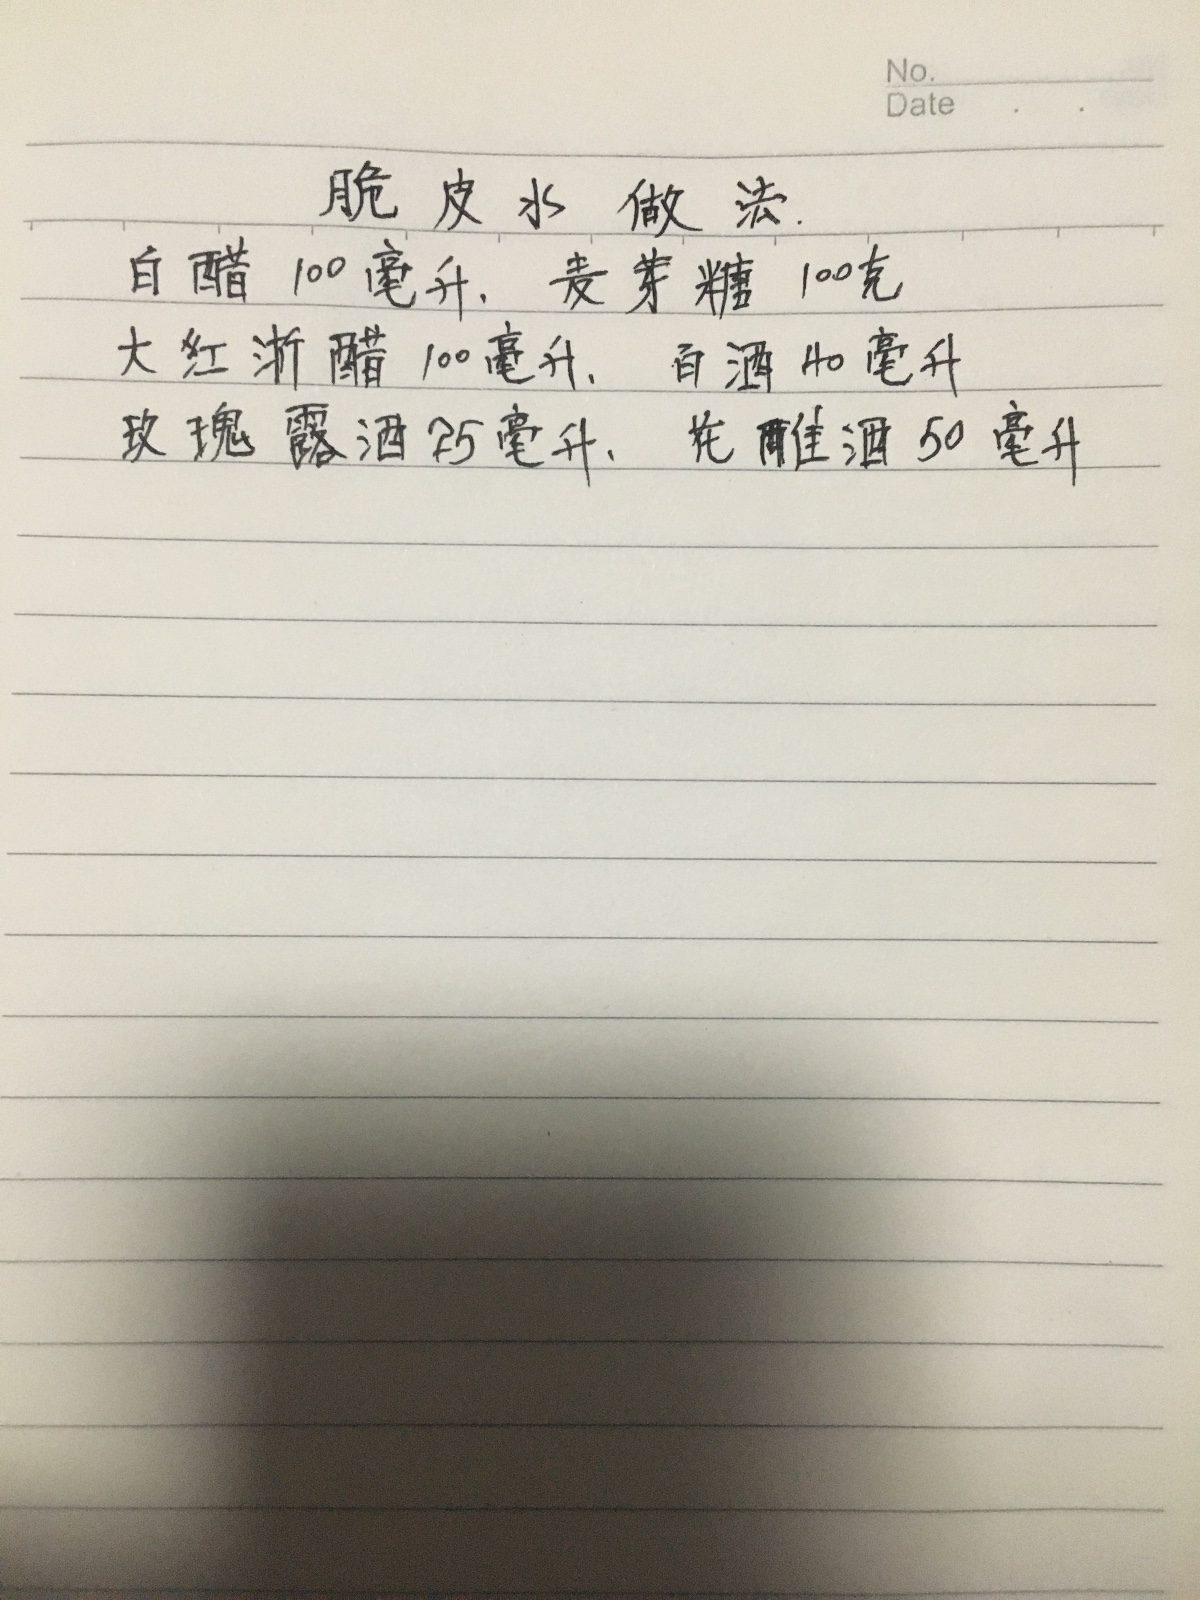 No.
Date . .
脆皮水做法.
白醋100毫升、麦芽糖100克
大红浙醋100毫升、白酒40毫升
玫瑰露酒25毫升、花雕酒50毫升